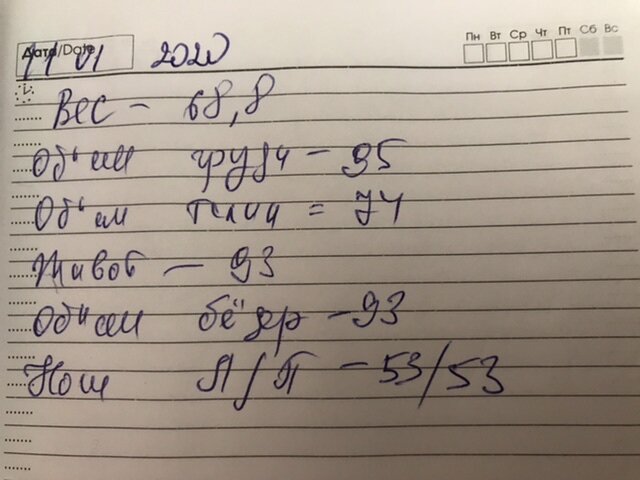 Дата/Date 11 01 2020 Пн Вт Ср Чт Пт Сб Вс
Вес - 68,8
Объём груди - 95
Объём талии = 74
Живот - 93
Объём бёдр - 93
Ноги Л/П - 53/53